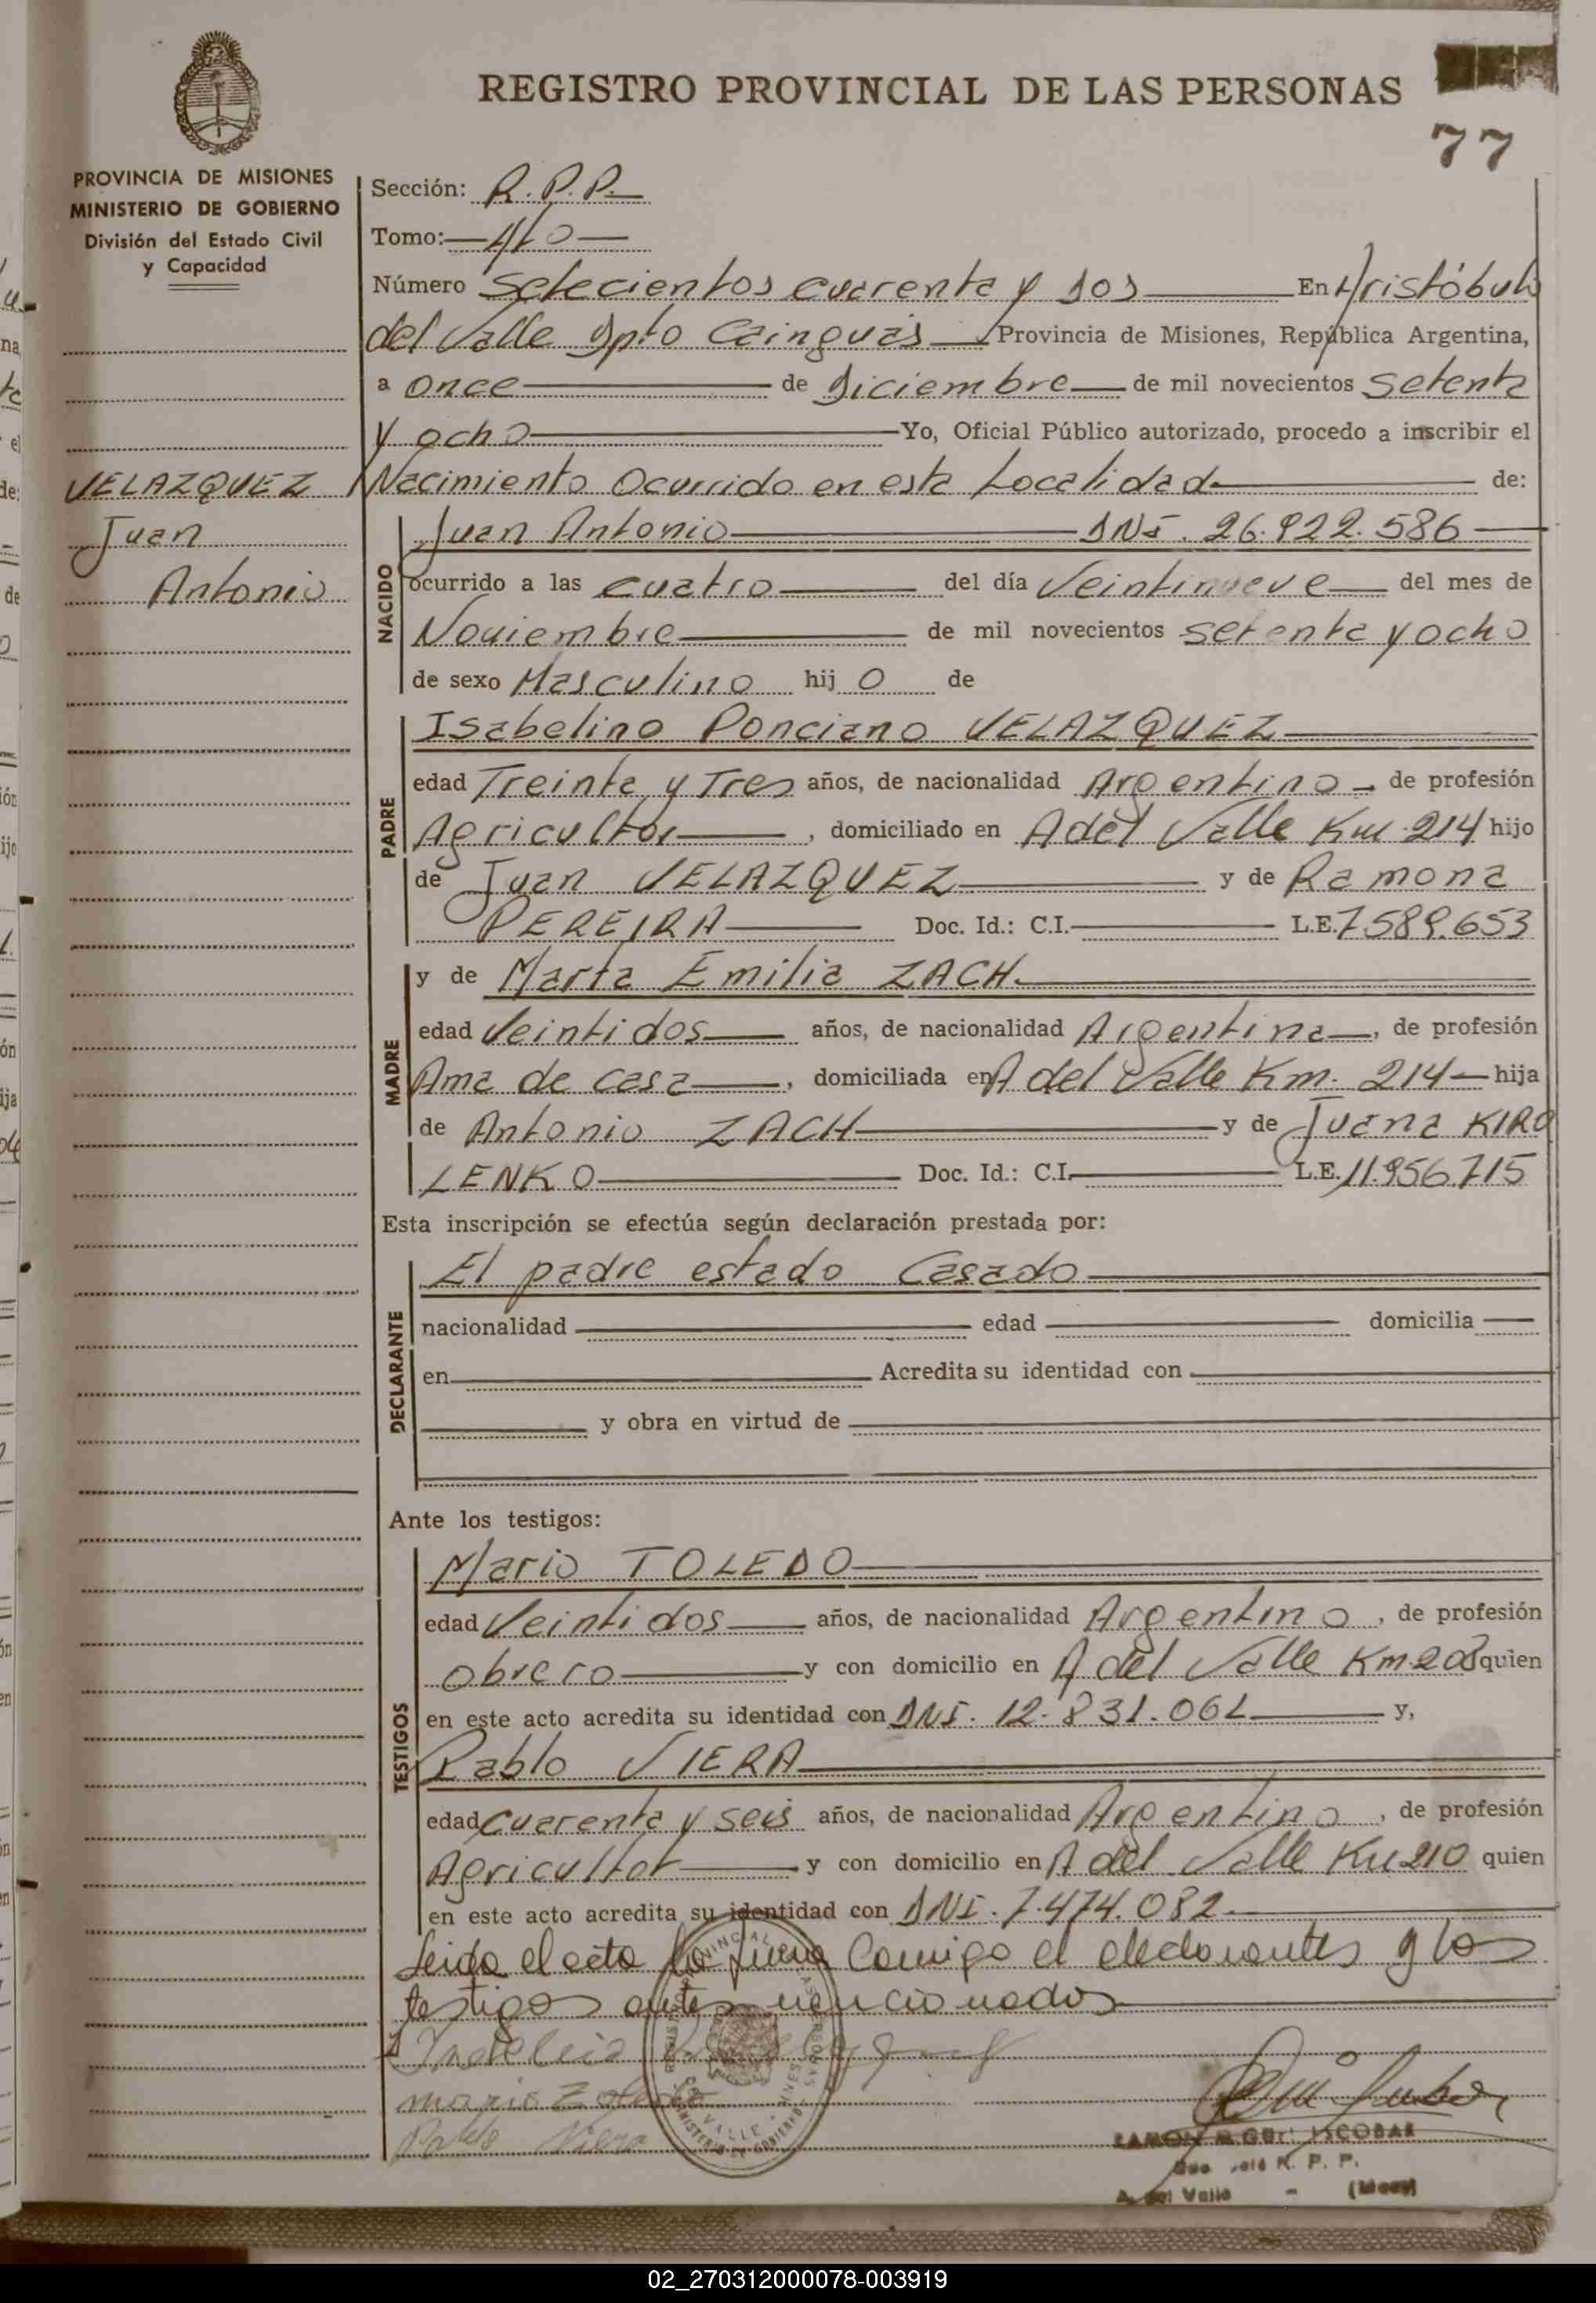 REGISTRO PROVINCIAL DE LAS PERSONAS
77
PROVINCIA DE MISIONES
MINISTERIO DE GOBIERNO
División del Estado Civil
y Capacidad
VELAZQUEZ
Juan
Antonio
Sección: R.P.P.
Tomo:
Número Setecientos cuarenta y dos En Aristóbulo
del Valle Dpto Cainguás Provincia de Misiones, República Argentina,
a once de Diciembre de mil novecientos setenta
y ocho Yo, Oficial Público autorizado, procedo a inscribir el
Nacimiento Ocurrido en esta Localidad de:
NACIDO
Juan Antonio DNI. 26.822.586
ocurrido a las cuatro del día Veintinueve del mes de
Noviembre de mil novecientos setenta y ocho
de sexo Masculino hij o de
PADRE
Isabelino Ponciano VELAZQUEZ
edad Treinta y Tres años, de nacionalidad Argentino de profesión
Agricultor , domiciliado en A del Valle Km 214 hijo
de Juan VELAZQUEZ y de Ramona
PEREIRA Doc. Id.: C.I. L.E. 7.589.653
MADRE
y de Marta Emilia ZACH
edad Veintidos años, de nacionalidad Argentina , de profesión
Ama de casa , domiciliada en A del Valle Km. 214 hija
de Antonio ZACH y de Juana KIRO
LENKO Doc. Id.: C.I. L.E. 11.956.715
Esta inscripción se efectúa según declaración prestada por:
DECLARANTE
El padre estado Casado
nacionalidad edad domicilia
en Acredita su identidad con
y obra en virtud de
Ante los testigos:
TESTIGOS
Mario TOLEDO
edad Veintidos años, de nacionalidad Argentino , de profesión
Obrero y con domicilio en A del Valle Km. quien
en este acto acredita su identidad con DNI. 12.831.061 y,
Pablo VIERA
edad Cuarenta y seis años, de nacionalidad Argentino , de profesión
Agricultor y con domicilio en A del Valle Km 210 quien
en este acto acredita su identidad con DNI. 7.474.082
Leida el acta la firma Comigo el declarantes y los
testigos antes mencionados
Pablo Viera
RAMON ESCOBAR
R. P. P.
A. del Valle - (Mnes)
02_270312000078-003919